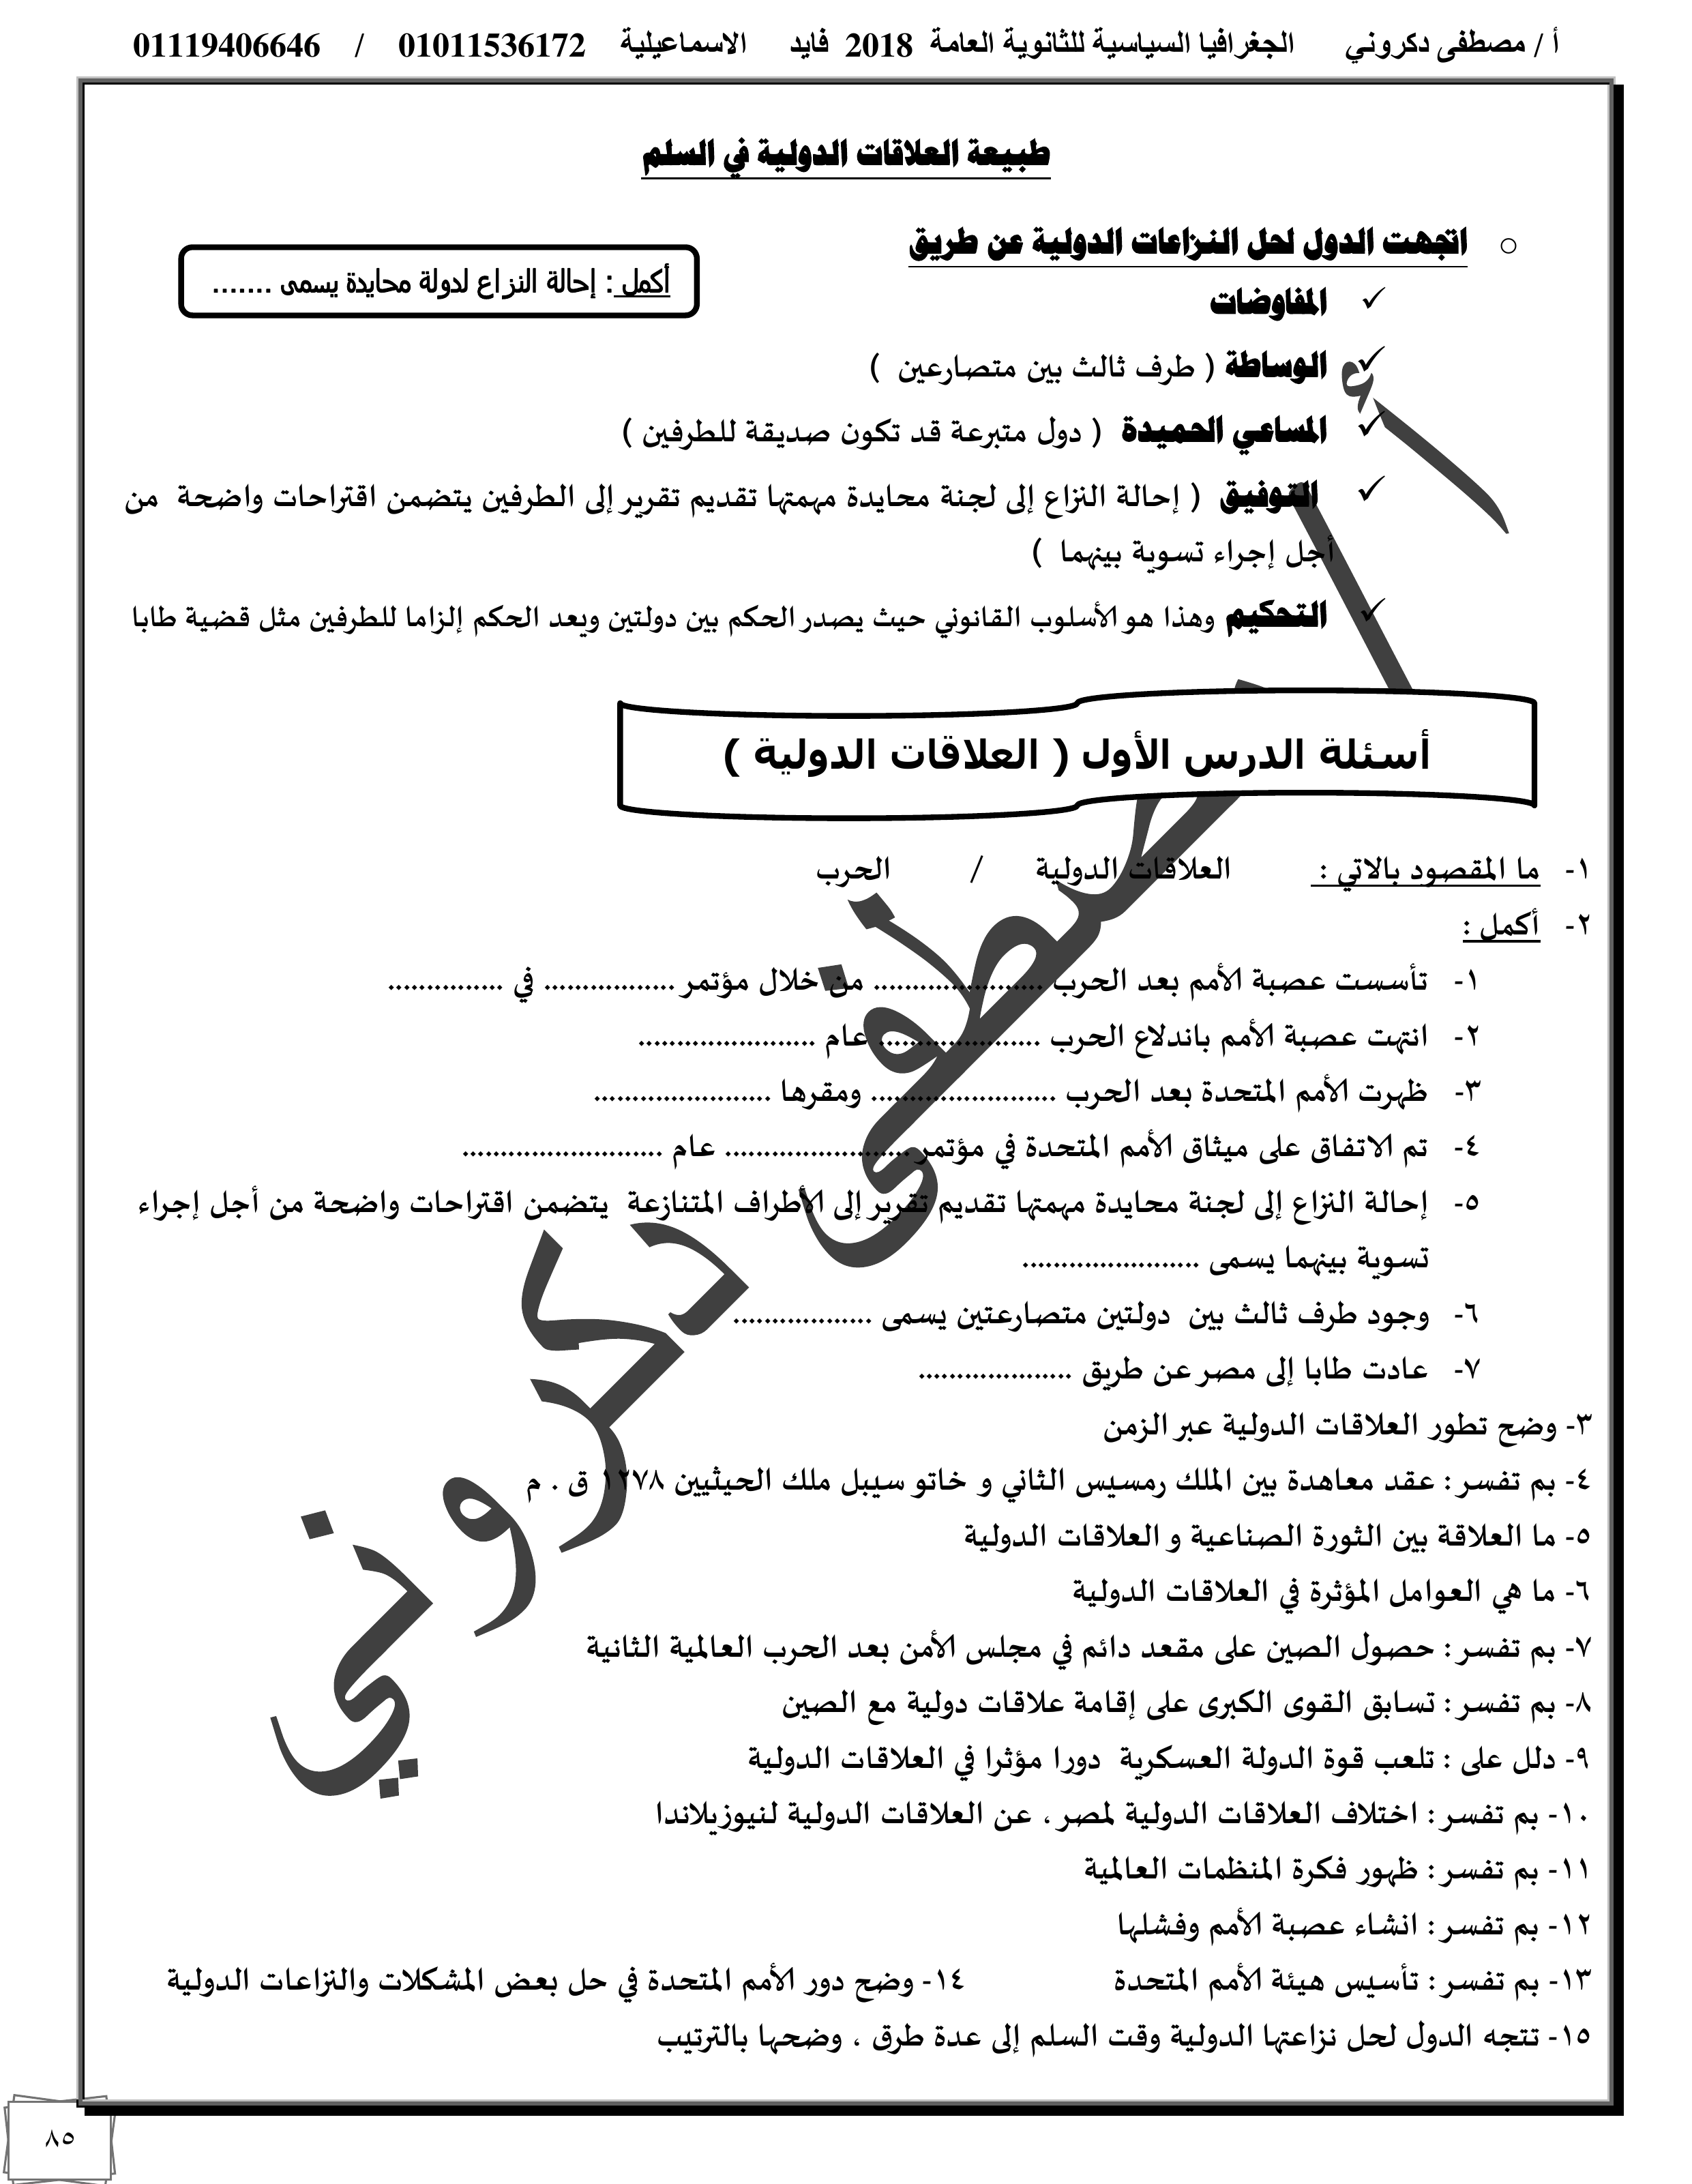 أ / مصطفى دكروني الجغرافيا السياسية للثانوية العامة 2018 فايد الاسماعيلية 01011536172 / 01119406646
طبيعة العلاقات الدولية في السلم
○ اتجهت الدول لحل النزاعات الدولية عن طريق
أكمل : إحالة النزاع لدولة محايدة يسمى .......
✓ المفاوضات
✓ الوساطة ( طرف ثالث بين متصارعين )
✓ المساعي الحميدة ( دول متبرعة قد تكون صديقة للطرفين )
✓ التوفيق ( إحالة النزاع إلى لجنة محايدة مهمتها تقديم تقرير إلى الطرفين يتضمن اقتراحات واضحة من
أجل إجراء تسوية بينهما )
✓ التحكيم وهذا هو الأسلوب القانوني حيث يصدر الحكم بين دولتين ويعد الحكم إلزاما للطرفين مثل قضية طابا
أسئلة الدرس الأول ( العلاقات الدولية )
١- ما المقصود بالاتي : العلاقات الدولية / الحرب
٢- أكمل :
١- تأسست عصبة الأمم بعد الحرب ...................... من خلال مؤتمر ................. في ...............
٢- انتهت عصبة الأمم باندلاع الحرب ..................... عام .......................
٣- ظهرت الأمم المتحدة بعد الحرب ........................ ومقرها .......................
٤- تم الاتفاق على ميثاق الأمم المتحدة في مؤتمر ........................ عام ..........................
٥- إحالة النزاع إلى لجنة محايدة مهمتها تقديم تقرير إلى الأطراف المتنازعة يتضمن اقتراحات واضحة من أجل إجراء
تسوية بينهما يسمى .......................
٦- وجود طرف ثالث بين دولتين متصارعتين يسمى ..................
٧- عادت طابا إلى مصر عن طريق ....................
٣- وضح تطور العلاقات الدولية عبر الزمن
٤- بم تفسر : عقد معاهدة بين الملك رمسيس الثاني و خاتو سيبل ملك الحيثيين ١٢٧٨ ق . م
٥- ما العلاقة بين الثورة الصناعية و العلاقات الدولية
٦- ما هي العوامل المؤثرة في العلاقات الدولية
٧- بم تفسر : حصول الصين على مقعد دائم في مجلس الأمن بعد الحرب العالمية الثانية
٨- بم تفسر : تسابق القوى الكبرى على إقامة علاقات دولية مع الصين
٩- دلل على : تلعب قوة الدولة العسكرية دورا مؤثرا في العلاقات الدولية
١٠- بم تفسر : اختلاف العلاقات الدولية لمصر ، عن العلاقات الدولية لنيوزيلاندا
١١- بم تفسر : ظهور فكرة المنظمات العالمية
١٢- بم تفسر : انشاء عصبة الأمم وفشلها
١٣- بم تفسر : تأسيس هيئة الأمم المتحدة ١٤- وضح دور الأمم المتحدة في حل بعض المشكلات والنزاعات الدولية
١٥- تتجه الدول لحل نزاعتها الدولية وقت السلم إلى عدة طرق ، وضحها بالترتيب
أ / مصطفى دكروني
٨٥